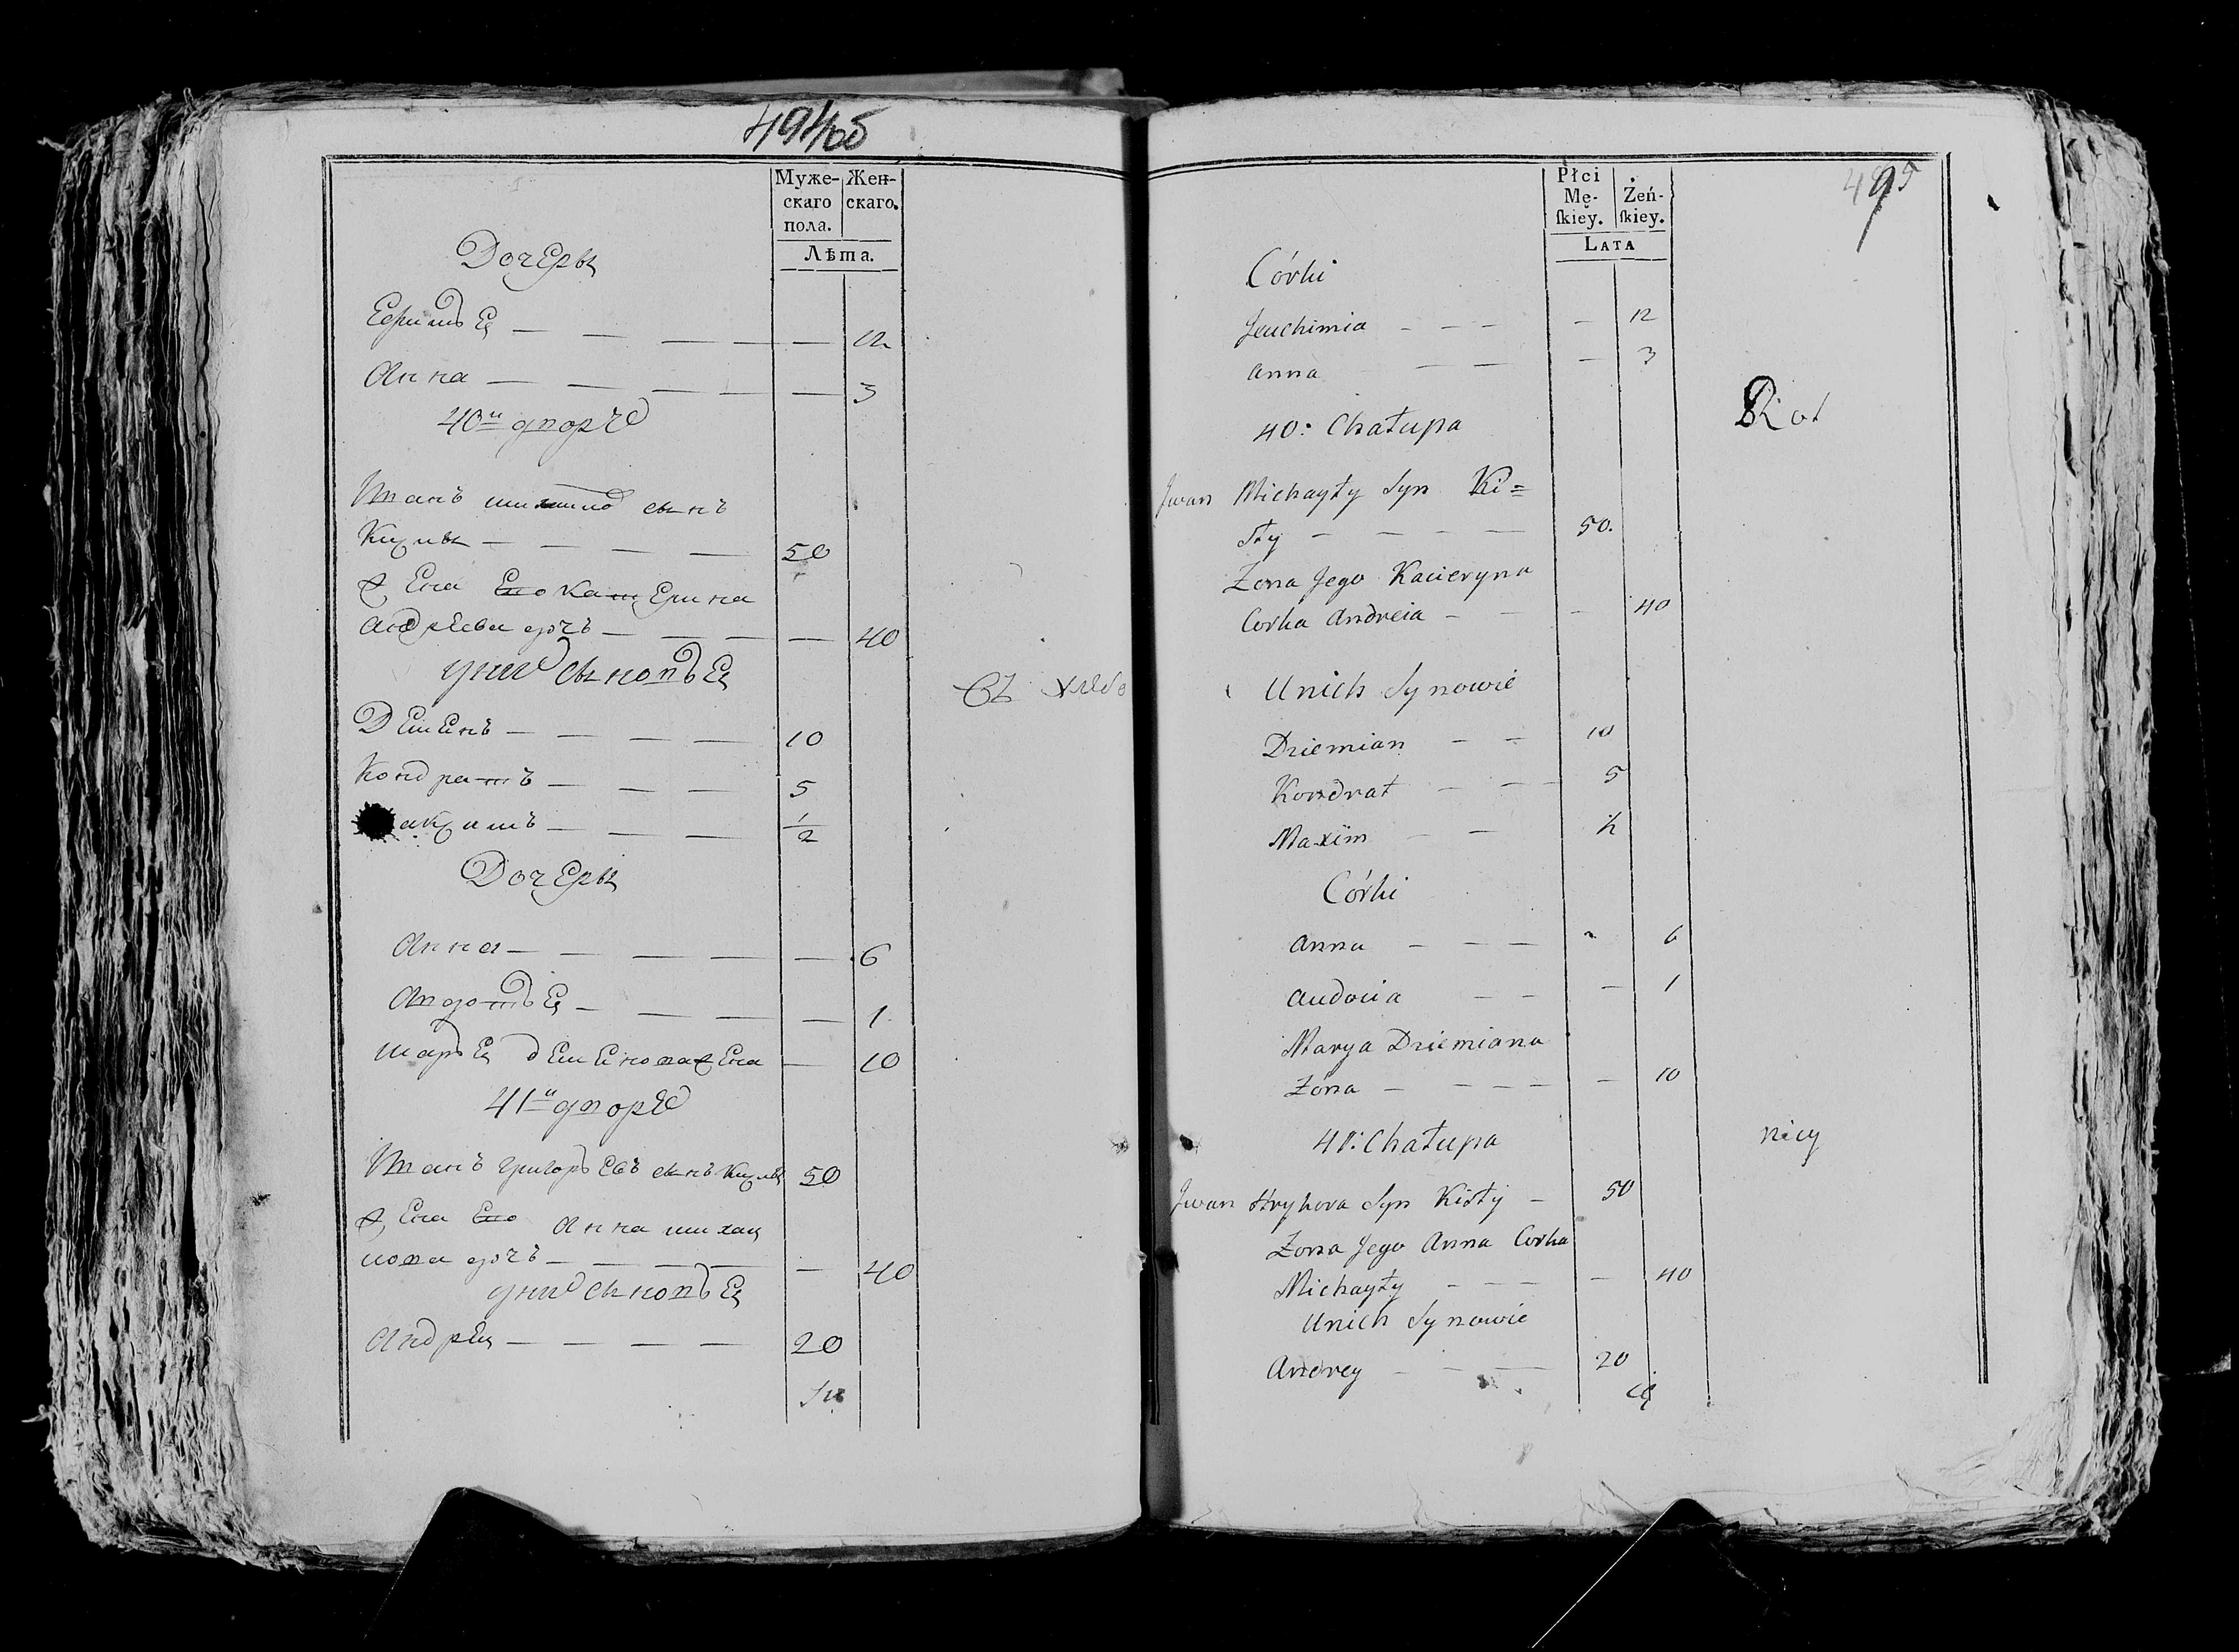 494об
Муже-
скаго
пола.
Жен-
скаго.
Лѣта.
Дочеры
Ефимъя — 12
Анна — 3
40й дворъ
Иванъ сынъ
50
Жена Его Катерина
Андрѣева дочь — 40
у них сыновъя
Деменъ — 10
Кондратъ — 5
аксимъ — 1/2
Дочеры
Анна — 6
Авдотъя — 1
Маръя Деменова жена — 10
41й дворъ
Иванъ Григоръевъ сынъ 50
Жена Его Анна Михай
лова дочь — 40
у них сыновъя
Андрей — 20
495
Płci
Mę-
skiey.
Żeń-
skiey.
Lata
Córki
Jeuchimia — — 12
Anna — — 3
40: Chałupa
Jwan Michayły Syn Ki=
sły — 50.
Zona Jego Kacieryna
Corka Andreia — — 40
Unich Synowie
Dziemian — 10
Kondrat — 5
Maxim — ½
Córki
Anna — — 6
Audocia — — 1
Marya Dziemiana
Zóna — — 10
41: Chałupa
Jwan Hryhora Syn Kisły — 50
Zona Jego Anna Corka
Michayły — — 40
Unich Synowie
Andrey — 20